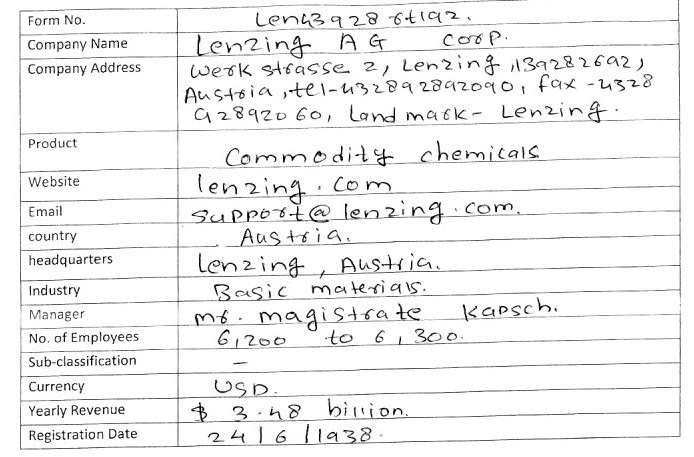 Form No. Len43928rt192.
Company Name Lenzing AG Corp.
Company Address Werkstrasse 2, Lenzing, 139282692,
Austria, tel-432892892090, fax-4328
92892060, Land mark- Lenzing.
Product Commodity chemicals
Website lenzing.com
Email support@lenzing.com.
country Austria.
headquarters Lenzing, Austria.
Industry Basic materials.
Manager mr. magistrate Kapsch.
No. of Employees 6,200 to 6,300.
Sub-classification –
Currency USD.
Yearly Revenue $ 3.48 billion.
Registration Date 24/6/1938.